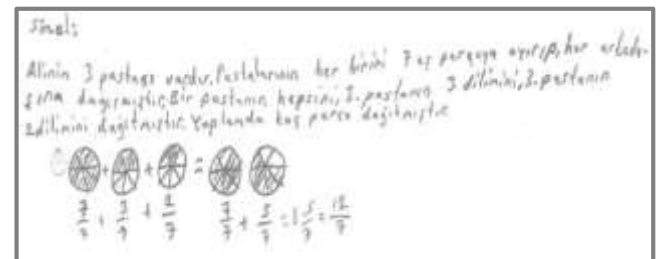 Alinin 3 pastası vardır. Pastalarının her birini 7 eş parçaya ayırıp, her arkada-
şına dağıtmıştır. Bir pastanın hepsini, 2. pastanın 3 dilimini, 3. pastanın
2 dilimini dağıtmıştır. Toplamda kaç parça dağıtmıştır
+ + =
7/7 + 3/7 + 2/7 7/7 + 5/7 = 1 5/7 = 12/7